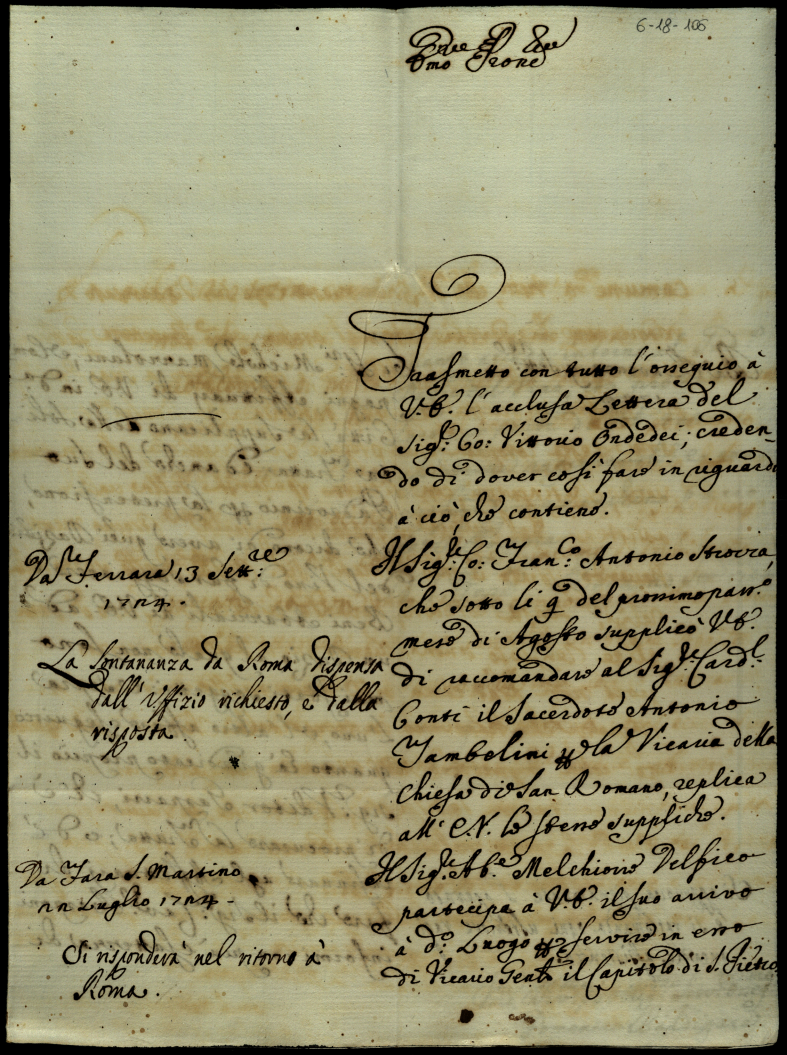 6-18-106
Em͞o Prone
Trasmetto con tutto l'ossequio, à
V.E. l'acclusa Lettera del
Sig.r Co: Vittorio Ondedei; creden-
do di dover così fare in riguardo
à ciò, che contiene.
Da Ferrara 13 Sett.re
1724.
La lontananza da Roma dispensa
dall'Uffizio richiesto, e dalla
risposta.
Il Sig.r Co: Fran.co Antonio Strozza,
che sotto li 9 del prossimo pass.o
mese di Agosto supplicò V.E.
di raccomandare al Sig.r Card.l
Conti il Sacerdote Antonio
Tambolini per la Vicaria della
Chiesa di San Romano, replica
all'E.V. le stesse suppliche.
Da Fara S. Martino
22 Luglio 1724.
Si risponderà nel ritorno à
Roma.
Il Sig.r Ab.e Melchiorre Delfico
partecipa à V.E. il suo arrivo
à d.o Luogo per servire in esso
di Vicario Gen.le il Capitolo di S. Pietro,